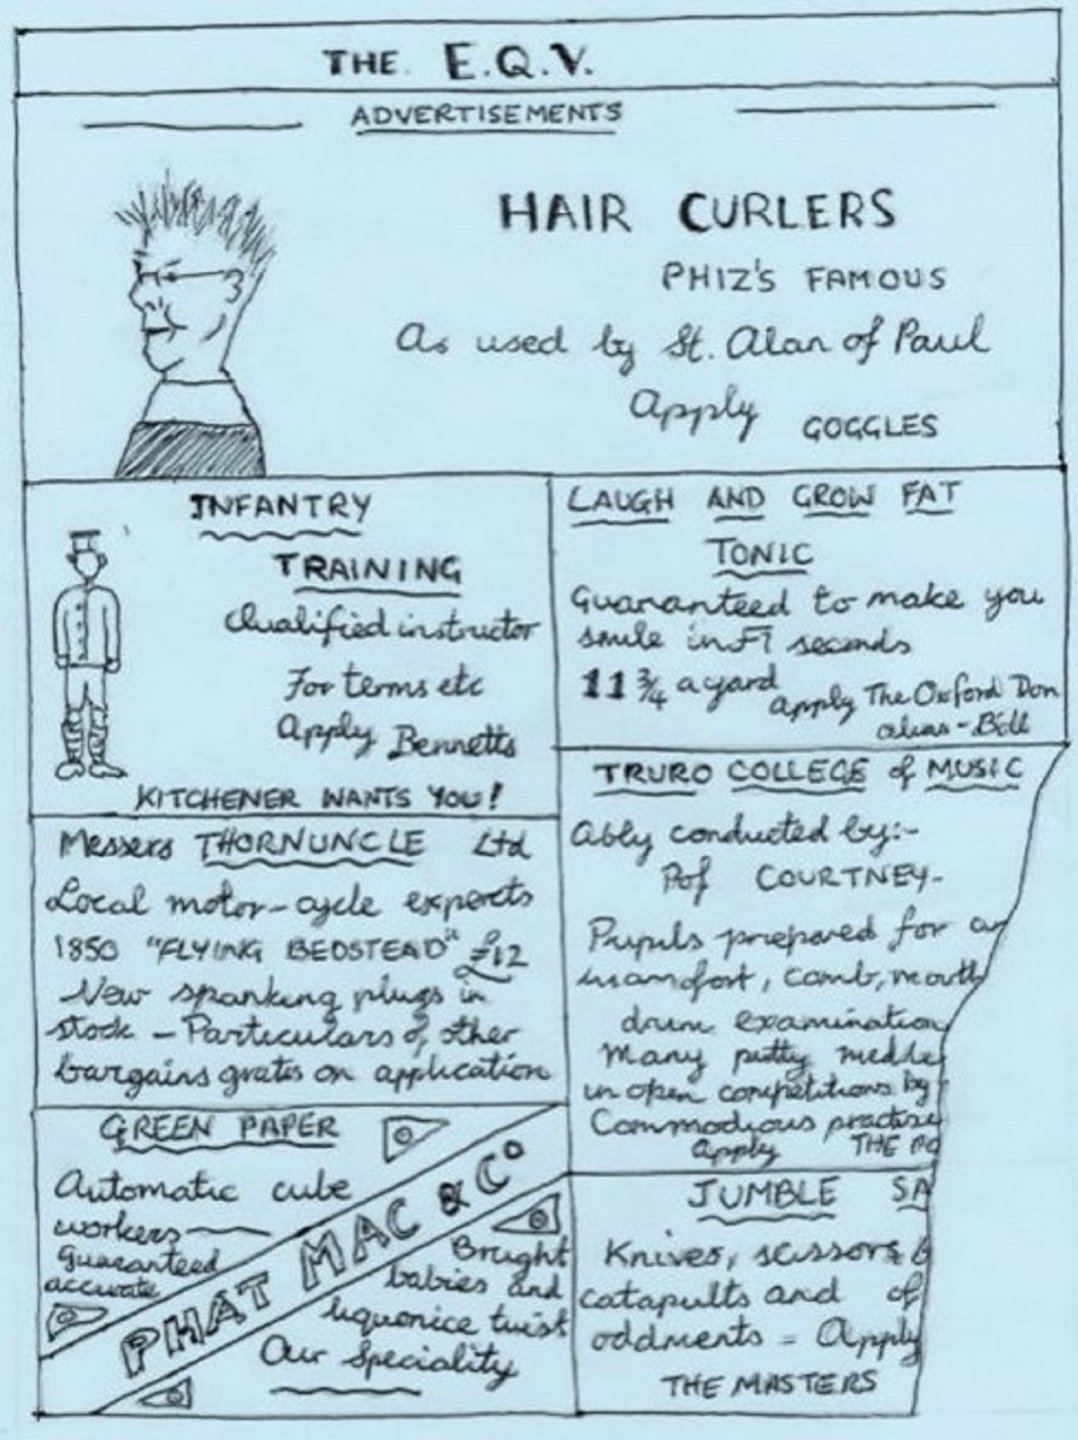 THE E.Q.V.
ADVERTISEMENTS
HAIR CURLERS
PHIZ'S FAMOUS
As used by St. Alan of Paul
Apply GOGGLES
INFANTRY
TRAINING
Qualified instructor
For terms etc
Apply Bennetts
KITCHENER WANTS YOU!
LAUGH AND GROW FAT
TONIC
Guaranteed to make you
smile in seconds
11 3/4 a yard
apply The Oxford Don
alias - Bill
Messers THORNUNCLE Ltd
Local motor-cycle experts
1850 "FLYING BEDSTEAD" £12
New spanking plugs in
stock - Particulars of other
bargains gratis on application
TRURO COLLEGE of MUSIC
Ably conducted by:-
Pof COURTNEY-
Pupils prepared for
comb, mouth
drum examination
Many putty
in open competitions by
Commodious practise
apply THE
GREEN PAPER
Automatic cube
workers
guaranteed
accurate
PHAT MAC & Co
Bright
babies and
liquorice twist
Our Speciality
JUMBLE SA
Knives, scissors
catapults and of
oddments = Apply
THE MASTERS